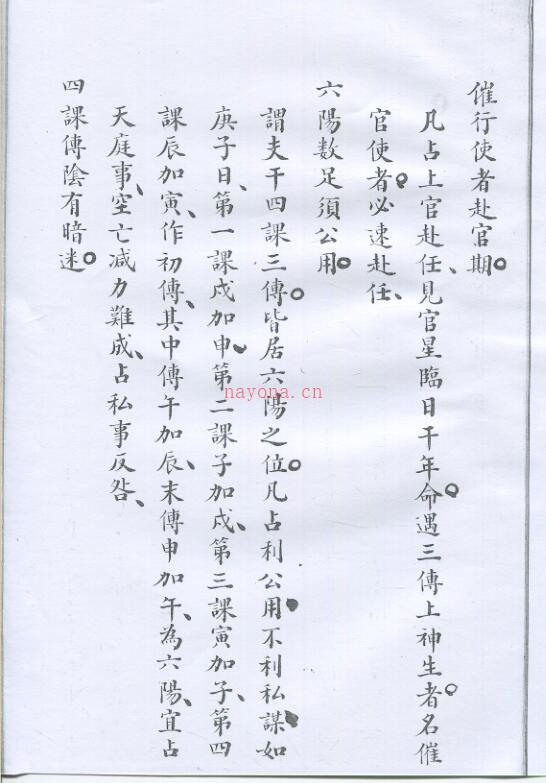 催行使者赴官期。
凡占上官赴任、見官星臨日干年命。遇三傳上神生者。名催
官使者。必速赴任、
六陽數足須公用。
謂夫干四課三傳。皆居六陽之位。凡占利公用、不利私謀、如
庚子日、第一課戌加申、第二課子加戌、第三課寅加子、第四
課辰加寅、作初傳、其中傳午加辰、末傳申加午、為六陽、宜占
天庭事、空亡減力難成、占私事反咎、
四課傳陰有暗迷。
nayona.cn